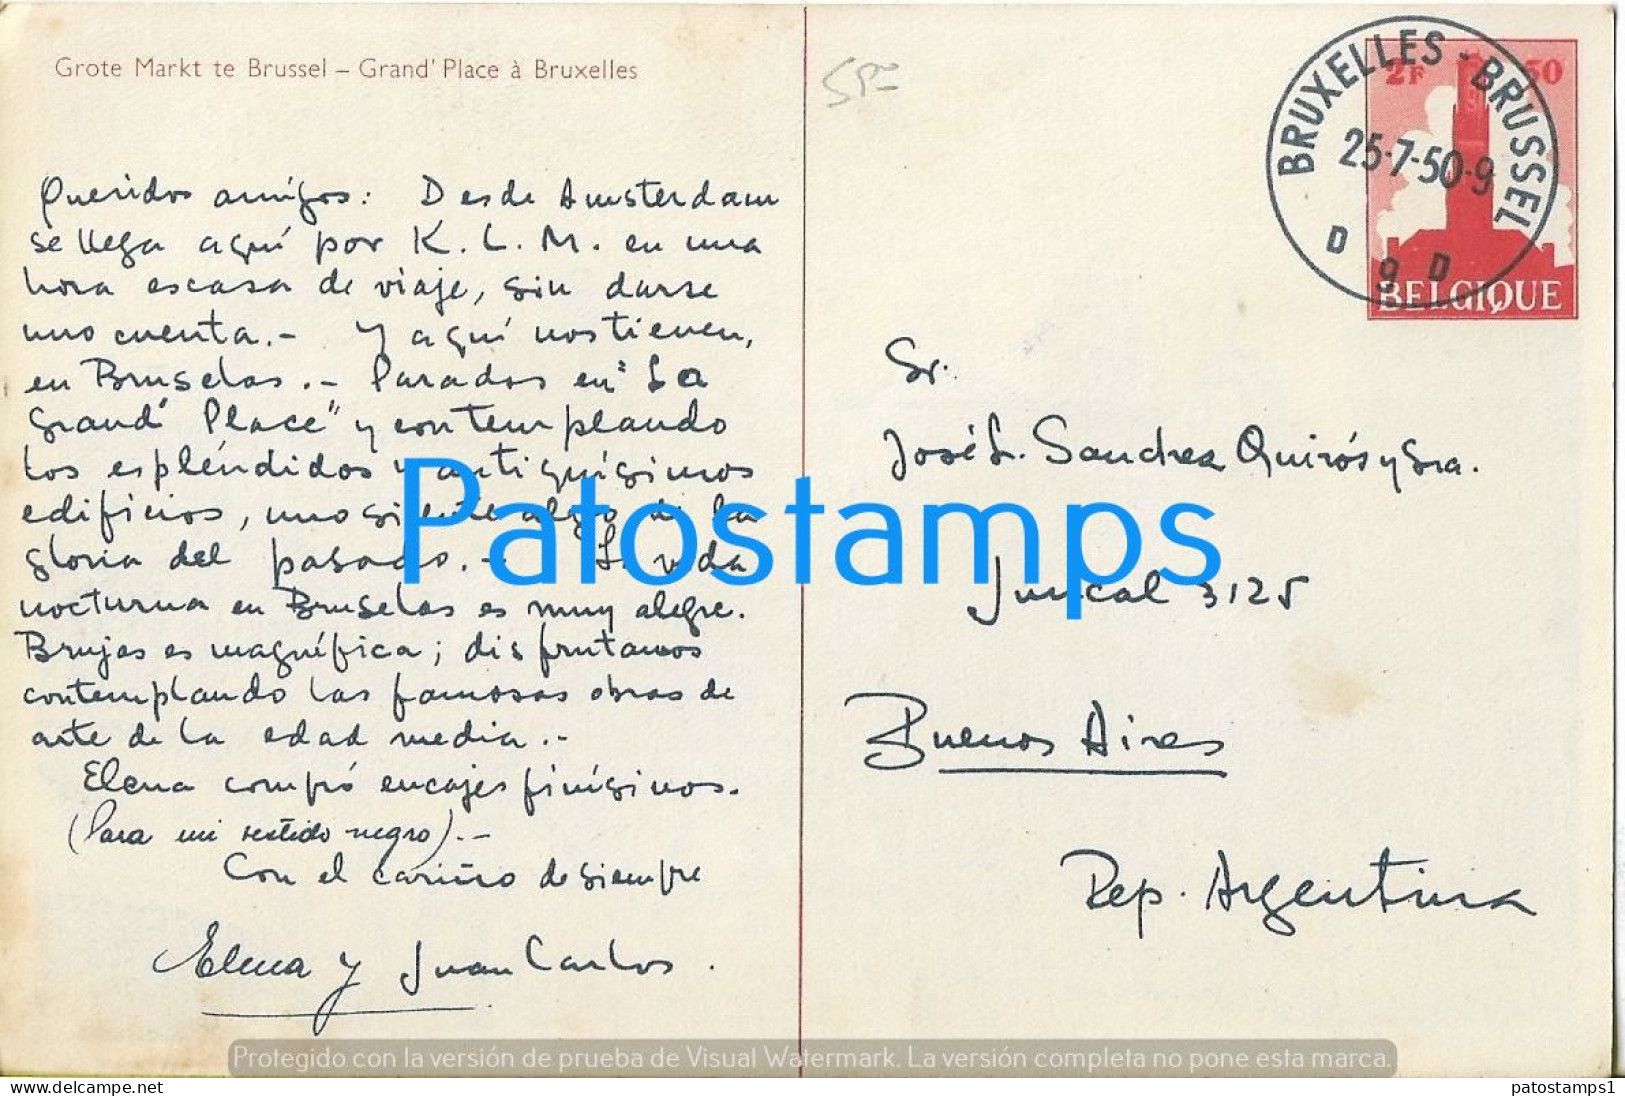 Grote Markt te Brussel – Grand' Place à Bruxelles
Queridos amigos: Desde Amsterdam
se llega aquí por K.L.M. en una
hora escasa de viaje, sin darse
uno cuenta.- Y aquí nos tienen,
en Bruselas.- Parados en "La
Grand' Place" y contemplando
los espléndidos y antiquísimos
edificios, uno siente algo de la
gloria del pasado.- La vida
nocturna en Bruselas es muy alegre.
Brujas es magnífica; disfrutamos
contemplando las famosas obras de
arte de la edad media.-
Elena compró encajes finísimos.
(Para mi vestido negro).-
Con el cariño de siempre
Elena y Juan Carlos.
BRUXELLES - BRUSSEL
25-7-50-9
D 9 D
2F 50
BELGIQUE
Sr.
José L. Sanchez Quirós y Sra.
Juncal 3125
Buenos Aires
Rep. Argentina
Patostamps
Protegido con la versión de prueba de Visual Watermark. La versión completa no pone esta marca.
patostamps1